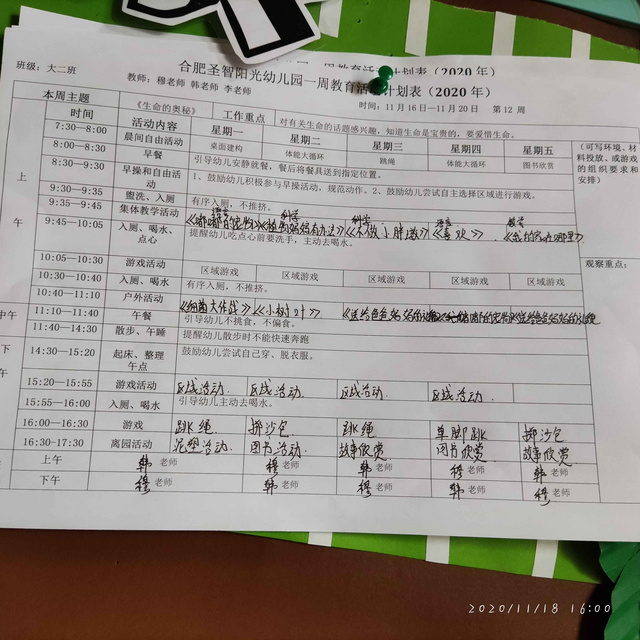 班级：大二班
合肥圣智阳光幼儿园一周教育活动计划表（2020年）
教师：穆老师 韩老师 李老师
时间：11月16日—11月20日 第12周
本周主题 《生命的奥秘》 工作重点 对有关生命的话题感兴趣，知道生命是宝贵的，要爱惜生命。
时间 活动内容 星期一 星期二 星期三 星期四 星期五
（可写环境、材料投放、或游戏的组织要求和安排）
7:30—8:00 晨间自由活动 桌面建构 体能大循环 跳绳 体能大循环 图书欣赏
8:00—8:30 早餐 引导幼儿安静就餐，餐后将餐具送到指定位置。
8:30—9:30 早操和自由活动 1、鼓励幼儿积极参与早操活动，规范动作。2、鼓励幼儿尝试自主选择区域进行游戏。
上午
9:30—9:35 盥洗、入厕 有序入厕，不推挤。
9:35—9:45 集体教学活动 科学
《不做小胖墩》《喜欢》
9:45—10:05 入厕、喝水、点心 提醒幼儿吃点心前要洗手，主动去喝水。
观察重点：
10:05—10:30 游戏活动 区域游戏 区域游戏 区域游戏 区域游戏 区域游戏
10:30—10:40 入厕、喝水 有序入厕，不推挤。
10:40—11:10 户外活动 《细菌大作战》《小树叶》
中午
11:10—11:40 午餐 引导幼儿不挑食，不偏食。
11:40—14:30 散步、午睡 提醒幼儿散步时不能快速奔跑
下午
14:30—15:20 起床、整理午点 鼓励幼儿尝试自己穿、脱衣服。
15:20—15:55 游戏活动 区域活动 区域活动 区域活动 区域活动
15:55—16:00 入厕、喝水 引导幼儿主动去喝水。
16:00—16:30 游戏 跳绳 掷沙包 跳绳 单脚跳 掷沙包
16:30-17:30 离园活动 泥塑活动 图书活动 故事欣赏 图书欣赏 故事欣赏
上午 韩老师 穆老师 韩老师 穆老师 韩老师
下午 穆老师 韩老师 穆老师 韩老师 穆老师
2020/11/18 16:00